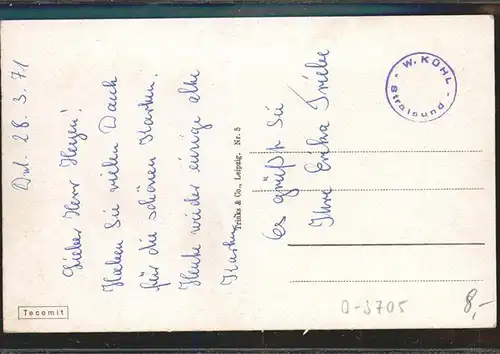 Dat. 28. 3. 71
Lieber Herr Heyen!
Haben Sie vielen Dank
für die schönen Karten.
Heute wieder einige alte
Karten
Es grüßt Sie
Ihre Erika Priebe
Trinks & Co., Leipzig. Nr. 5
- W. KÜHL -
Stralsund
Tecomit
0-3705
8,-